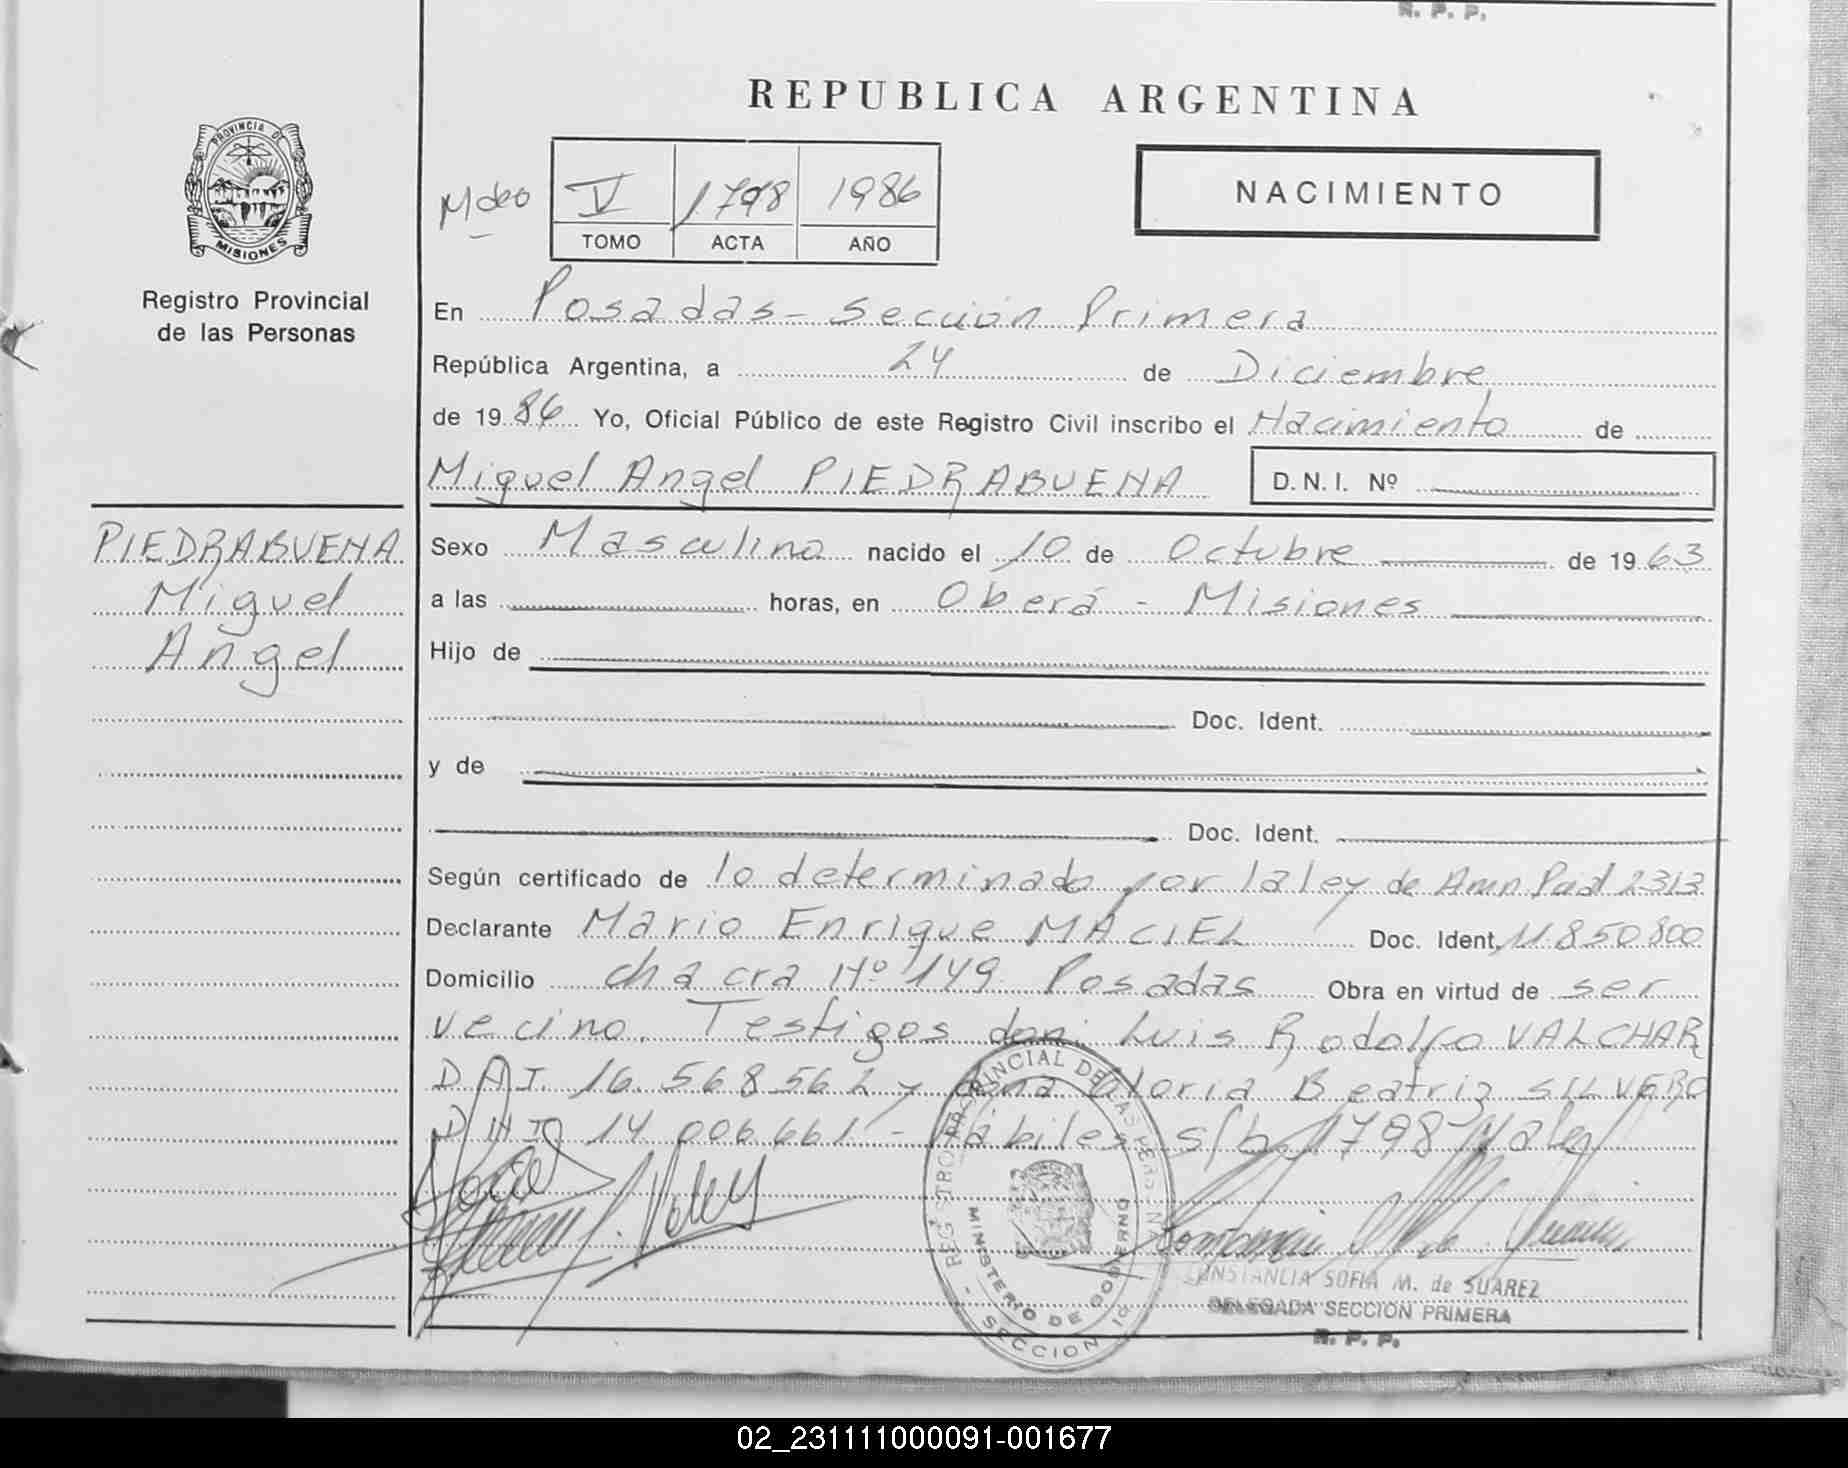 R. P. P.
REPUBLICA ARGENTINA
PROVINCIA DE
MISIONES
Registro Provincial
de las Personas
Mdeo V 1798 1986
TOMO ACTA AÑO
NACIMIENTO
En Posadas - Sección Primera
República Argentina, a 24 de Diciembre
de 1986 Yo, Oficial Público de este Registro Civil inscribo el Nacimiento de
Miguel Angel PIEDRABUENA D.N.I. Nº
PIEDRABUENA
Miguel
Angel
Sexo Masculino nacido el 10 de Octubre de 1963
a las horas, en Oberá - Misiones
Hijo de
Doc. Ident.
y de
Doc. Ident.
Según certificado de lo determinado por la ley de Amn Pad 2313
Declarante Mario Enrique MACIEL Doc. Ident. 11.850.800
Domicilio chacra Nº 149 Posadas Obra en virtud de ser
vecino. Testigos don: Luis Rodolfo VALCHAR
D.N.I. 16.568.562 y doña Gloria Beatriz SILVERO
D.N.I. 14.006.661 - Hábiles s/b 1798 Vale
REGISTRO PROVINCIAL DE LAS PERSONAS
MINISTERIO DE GOBIERNO
SECCION 1ra
CONSTANCIA SOFIA M. de SUAREZ
DELEGADA SECCION PRIMERA
R. P. P.
02_231111000091-001677